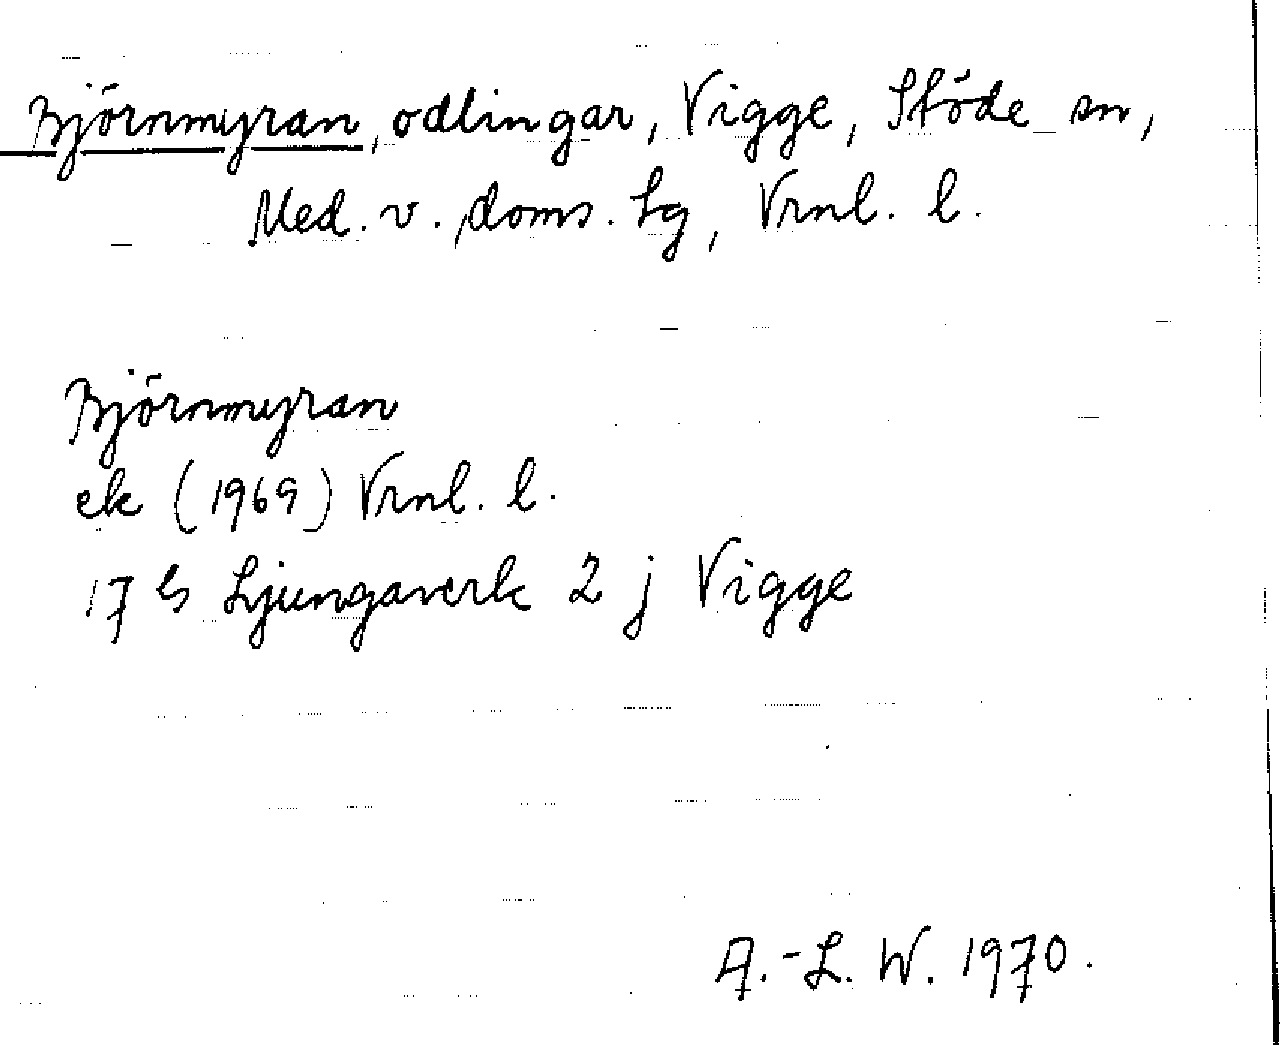 Björnmyran, odlingar, Vigge, Stöde sn,
Med. v. doms. lg, Vrnl. l.
Björnmyran
ek (1969) Vrnl. l.
17 G Ljungaverk 2 j Vigge
A.-L. W. 1970.